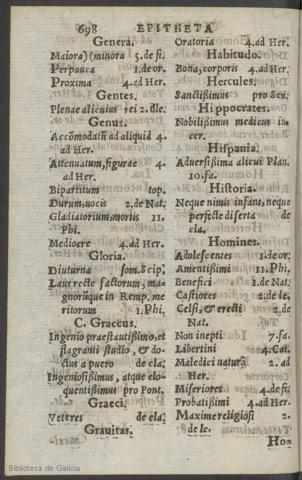 698 EPITHETA
Genera.
Maiora)(minora 5. de fi.
Perpauca 1. de or.
Proxima 4. ad Her.
Gentes.
Plenae alicuius rei 2. de le.
Genus.
Accōmodatū ad aliquid 4.
ad Her.
Attenuatum, figurae 4.
ad Her.
Bipartitum top.
Durum, uocis 2. de Nat.
Gladiatorium, mortis 11.
Phi.
Mediocre 4. ad Her.
Gloria.
Diuturna som. Scip.
Laus recte factorum, ma-
gnorūque in Remp. me
ritorum 1. Phi.
C. Graccus.
Ingenio praestautißimo, et
flagranti studio, & do-
ctus a puero de cla.
Ingeniosißimus, atque elo-
quentißimus pro Font.
Gracci.
Veteres de cla.
Grauitas.
Oratoria 4. ad Her.
Habitudo.
Bona, corporis 4. ad Her.
Hercules.
Sanctißimus pro Sex.
Hippocrates.
Nobilißimus medicus in-
cer.
Hispania.
Aduersißima alicui Plan.
10. fa.
Historia.
Neque nimis infans, neque
perfecte diserta de
cla.
Homines.
Adolescentes 1. de or.
Amentißimi 11. Phi.
Benefici 1. de Nat.
Castiores 2. de le.
Celsi, & erecti 2. de
Nat.
Non inepti 7. fa.
Libertini 4. Cat.
Maledici natura 2. ad
Her.
Miseriores 4. de fi.
Probatißimi 4. ad Her.
Maxime religiosi 2.
de le.
Ho=
Biblioteca de Galicia